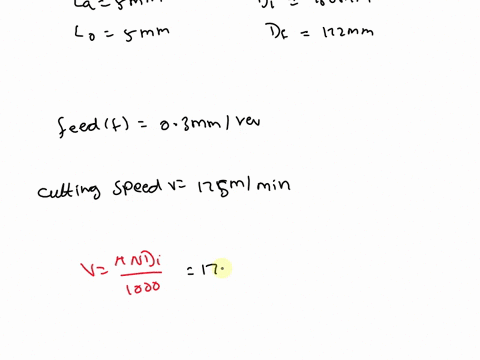 La = 5mm
Di =
L0 = 5mm
Df = 122mm
feed(f) = 0.3mm/rev
cutting speed v= 175m/min
V= πNDi / 1000 = 17.